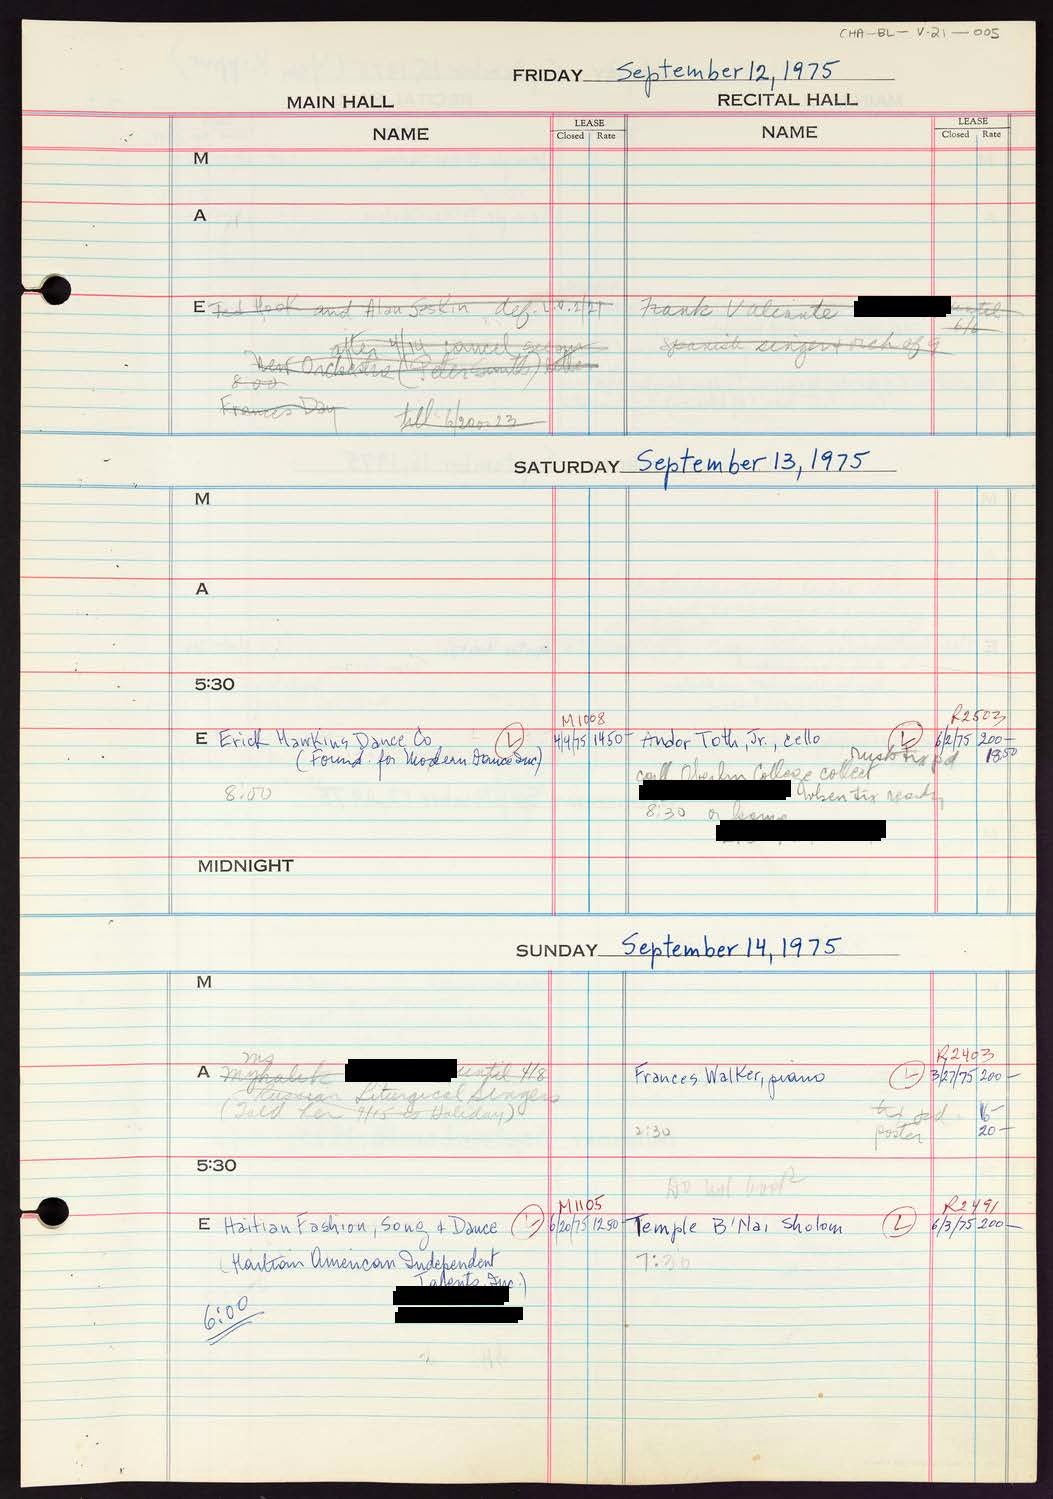 CHA-BL-V.21-005
FRIDAY September 12, 1975
MAIN HALL
RECITAL HALL
NAME
LEASE
Closed Rate
NAME
LEASE
Closed Rate
M
A
E
and Alan def. 1/21
Frank Valiante until
6/6
after 4/14 cancel
Spanish singer + orch of 9
Orchestra (Peter Smith)
8:00
Frances Day
till 6/20
SATURDAY September 13, 1975
M
A
5:30
M1008
E Erick Hawkins Dance Co L 4/4/75 1450-
(Found. for Modern Dance Inc)
8:00
R2503
Andor Toth, Jr., cello L 6/2/75 200-
pd 1850
call Oberlin College collect
when tix ready
8:30 or
MIDNIGHT
SUNDAY September 14, 1975
M
Ms
A until 4/8
Russian Liturgical Singers
(Told her 9/15 is Holiday)
R2403
Frances Walker, piano L 3/27/75 200-
tix
2:30 poster 20-
5:30
Do not book
M1105
E Haitian Fashion, Song & Dance L 6/20/75 1250-
(Haitian American Independent
Talents Inc.)
6:00
R2491
Temple B'Nai Sholom L 6/3/75 200-
7:30